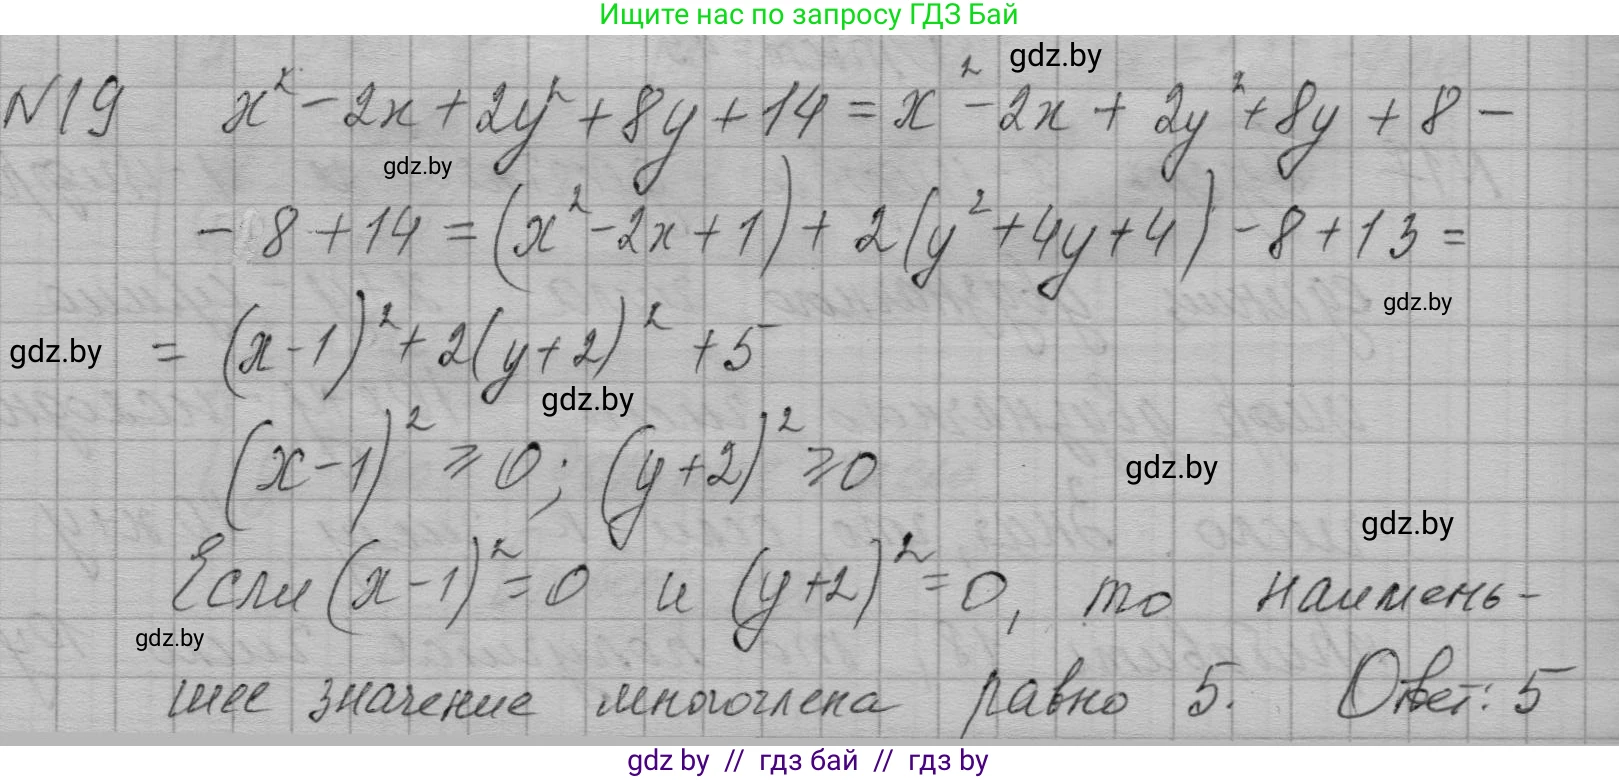 Ищите нас по запросу ГДЗ Бай
gdz.by
N19 x² - 2x + 2y² + 8y + 14 = x² - 2x + 2y² + 8y + 8 -
gdz.by
- 8 + 14 = (x² - 2x + 1) + 2(y² + 4y + 4) - 8 + 13 =
gdz.by
gdz.by = (x - 1)² + 2(y + 2)² + 5
gdz.by
(x - 1)² ⩾ 0; (y + 2)² ⩾ 0
gdz.by
gdz.by
Если (x - 1)² = 0 и (y + 2)² = 0, то наимень-
gdz.by
шее значение многочлена равно 5. Ответ: 5
gdz.by // гдз бай // гдз by